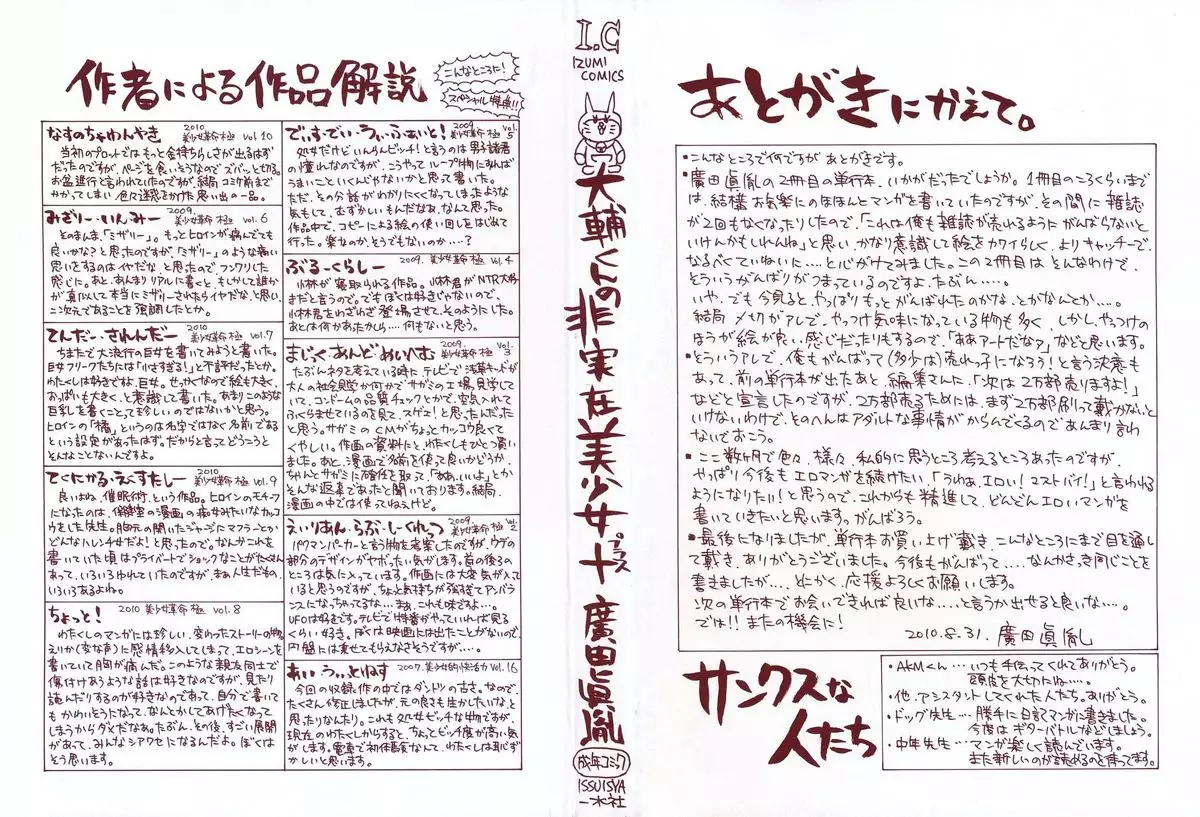 作者による作品解説
こんなところに!
スペシャル特典!!
なすのちゃわんやき 2010 美少女革命 極 vol.10
当初のプロットではもっと金持ちらしさが出るはず
だったのですが、ページを食いそうなのでズバッと切る。
お盆進行と言われていたのですが、結局コミケ前まで
かかってしまい色々迷惑をかけた思い出の一品。
みざりー・いんみー 2009. 美少女革命 極 vol.6
そのまんま、「ミザリー」。もっとヒロインが病んでても
良いかな?と思ったのですが、「ミザリー」のような痛い
思いをするのはイヤだなぁと思ったので、フンワリした
感じに。あと、あんまりリアルに書くと、もしかして誰か
が真似して本当にミザリーされたらイヤだな、と思い、
二次元であることを強調したとか。
てんだー・されんだー 2010 美少女革命 極 vol.7
ちまたで大流行の巨女を書いてみようと書いた。
巨女フリークたちには「小せすぎる!」と不評だったとか。
わたくしは好きですよ、巨女。せっかくなので絵も大きく、
おっぱいも大きく、と意識して書いた。あまりこのような
巨乳を書くことって珍しいのではないかと思う。
ヒロインの「橘」というのは名字ではなく名前である
という設定があったはず。だからと言ってどうこうと
そんなことないんですよ。
てくにかる・えくすたしー 2010 美少女革命 極 vol.9
良いよね、催眠術、という作品。ヒロインのモチーフ
になったのは、保健室の漫画の痴女みたいなカッコ
ウをした先生。胸元の開いたジャージにマフラーとか
どんなハレンチ女だよ!と思ったので。なんかこれを
書いていた頃はプライバートでショックなことがたくさん
あって、いろいろゆれていたのですが、まぁ人生だもの、
いろいろあるよね。
ちょっと! 2010 美少女革命 極 vol.8
わたくしのマンガには珍しい、変わったストーリーの物。
えりか(変な声)に感情移入してしまって、エロシーンを
書いていて胸が痛んだ。このような親友同士で
傷付けあうような話は好きなのですが、見たり
読んだりするのが好きなのであって、自分で書いて
もかわいそうだなって、なんとかしてあげたくなって
しまうからダメだなぁ。たぶん、その後、すごい展開
があって、みんなシアワセになるんだよ。ぼくは
そう思います。
でぃす・でぃい・うぃ・ふぁいと! 2009 美少女革命 極 vol.5
処女だけどいんらんビッチ!と言うのは男子諸君
の憧れなのですが、こうやってループ物にすれば
うまいこといくんじゃないかと思って書いた。
ただ、その分話がわかりにくくなってしまったような
気もして、むずかしいもんだなぁ、なんて思った。
作品中で、コピーによる絵の使い回しをはじめて
行った。楽なのか、そうでもないのか....?
ぶるーくらしー 2009. 美少女革命 極 vol.4
小林が寝取られる作品。小林君がNTR大好
きだと言うので。でもぼくは好きじゃないので、
小林君をわざわざ登場させて、そのようにした。
あとは何かあったかしら....何もないと思う。
まじっく・あんど・めいへむ 2009. 美少女革命 極 vol.3
たぶんネタを考えている時に、テレビで浅草キッドが
大人の社会見学か何かでサガミの工場見学して
いて、コンドームの品質チェックとかで、空気入れて
ふくらませているのを見て、スゲェ!と思ったんだった
と思う。サガミのCMがちょっとカッコ良くて
くやしい。作画の資料にと、わたくしもひとつ買い
ました。あと、漫画で名前を使って良いかどうか、
ちゃんとサガミに確認を取って、「ああ、いいよ」とか
そんな返事であったと聞いております。結局、
漫画の中では使ってねえけど。
えいりあん・らぶ・しーくれっつ 2009. 美少女革命 極 vol.2
パワマンパーカーと言う物を考案したのですが、ウデの
部分のデザインがヤボったい気がします。首の後ろの
ところは気に入っています。作画には大変気が入って
いると思うのですが、ちょっと気持ちが強すぎてアンバラ
ンスになっちゃってるな....まぁ、これも味ですよ...。
UFOは好きです。テレビで特番がやっていれば見る
くらい好き。ぼくは映画には出たことがないので、
円盤には乗せてもらえなさそうですが...。
あぃ・うぃっとねす 2007. 美少女的快活力 vol.16
今回の収録作の中ではダントツの古さ。なので、
たくさん修正しましたが、元の良さも生かしたいな、と
思ったりなんたり。これも処女ビッチな物ですが、
現在のわたくしからすると、ちょっとビッチ度が高い気
がします。電車で初体験なんて、わたくしは恥ずか
しいと思います。
I.C
IZUMI COMICS
大輔くんの非実在美少女+プラス
廣田眞胤
成年コミック
ISSUISYA
一水社
あとがきにかえて。
・こんなところで何ですが あとがきです。
・廣田眞胤の2冊目の単行本、いかがだったでしょうか。1冊目のころくらいまで
は、結構お気楽にのほほんとマンガを書いていたのですが、その間に雑誌
が2回もなくなったりしたので、「これは俺も雑誌が売れるようにがんばらないと
いけんかもしれんね」と思い、かなり意識して絵をカワイらしく、よりキャッチーで、
なるべくていねいに....と心がけてみました。この2冊目はそんなわけで、
そういうがんばりがつまっているのですよ、たぶん....。
いや、でも今見ると、やっぱりもっとがんばれたのかな、とかなんとか....。
結局 〆切がアレで、やっつけ気味になっている物も多く、しかし、やっつけの
ほうが絵が良い感じだったりもするので、「ああアートだなァ」などと思います。
・というアレで、俺もがんばって(多少は)売れっ子になろう!と言う決意も
あって、前の単行本が出たあと、編集さんに、「次は2万部売りますよ!」
などと宣言したのですが、2万部売るためには、まず2万部刷って戴かないと
いけないわけで、そのへんはアダルトな事情がからんでくるので、あんまり言わ
ないでおこう。
・ここ数ヶ月で色々、様々、私的に思うところ考えるところあったのですが、
やっぱり今後もエロマンガを続けたい、「うわぁ、エロい!マストバイ!」と言われる
ようになりたい!と思うので、これからも精進して、どんどんエロいマンガを
書いていきたいと思います。がんばろう。
・最後になりましたが、単行本お買い上げ戴き、こんなところにまで目を通し
て戴き、ありがとうございました。今後もがんばって.....なんかさっき同じことを
書きましたが....とにかく、応援よろしくお願いします。
次の単行本でお会いできれば良いな....と言うか出せると良いな....。
では!!またの機会に!
2010.8.31. 廣田眞胤
サンクスな人たち
・AKMくん....いつも手伝ってくれてありがとう。
頭皮を大切にね....。
・他、アシスタントしてくれた人たち、ありがとう。
・ドッグ先生...勝手に日記マンガに書きました。
今度はギターバトルなどしましょう。
・中年先生...マンガ楽しく読んでいます。
また新しいのが読めるのを待ってます。